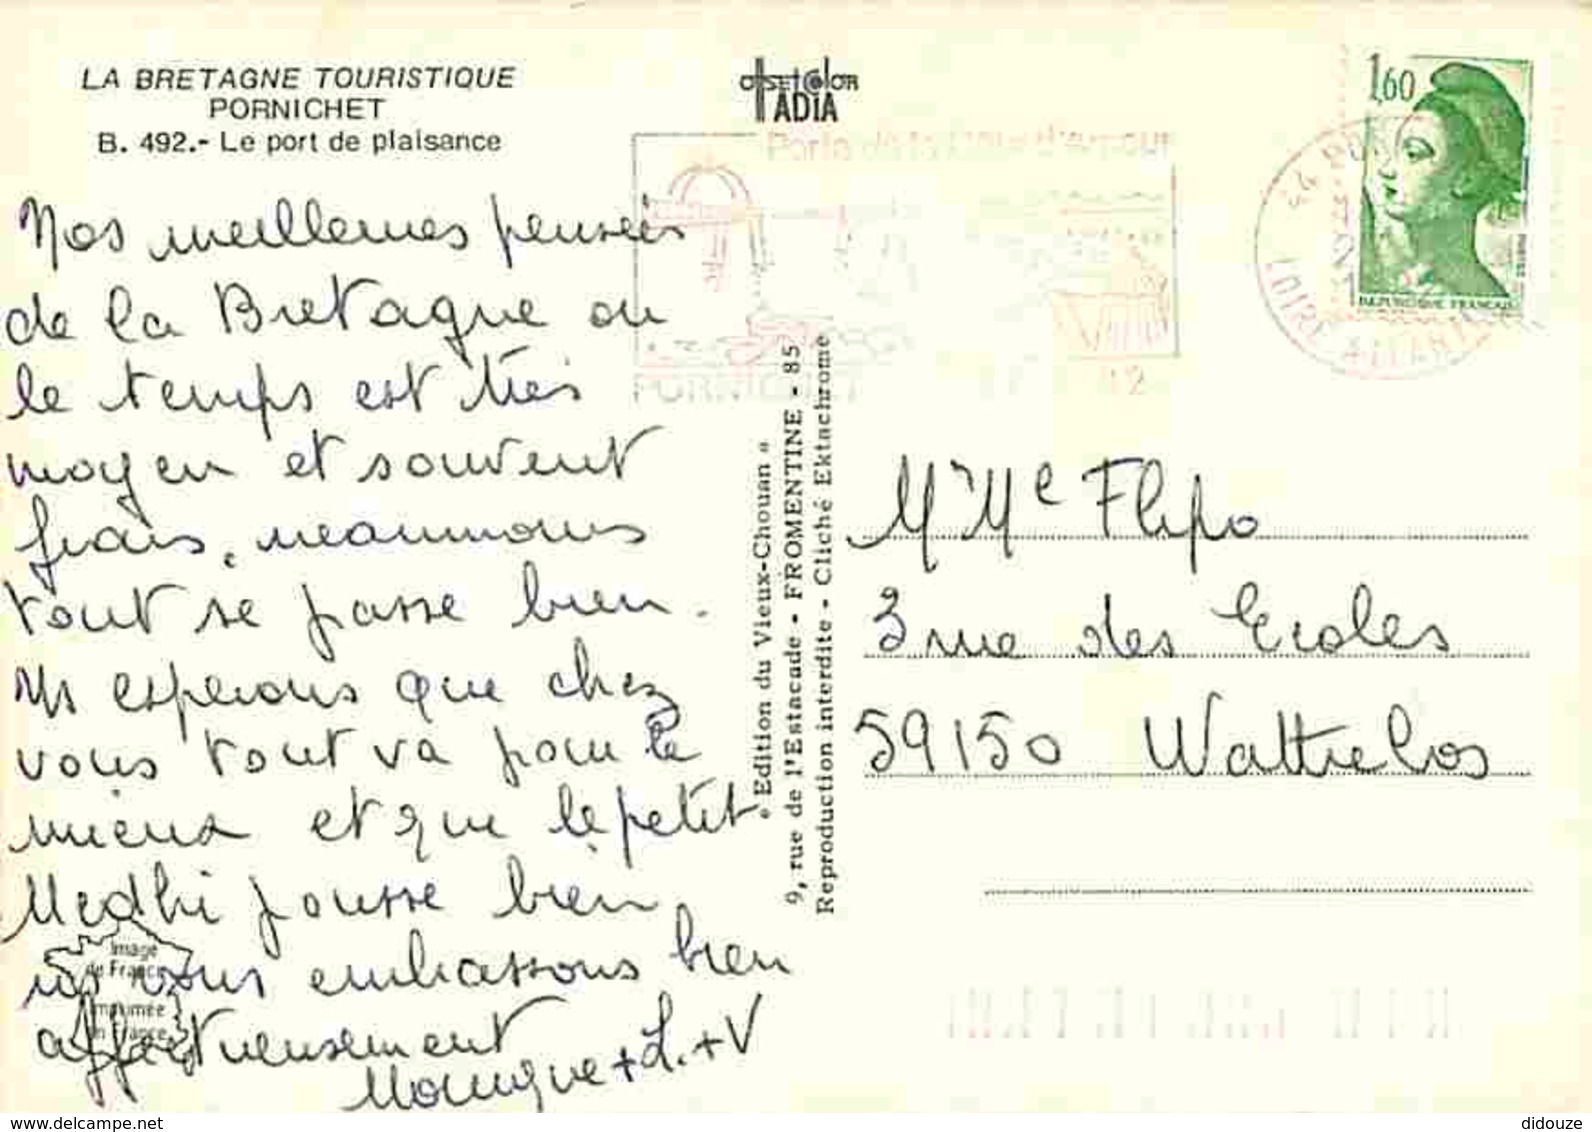 LA BRETAGNE TOURISTIQUE
PORNICHET
B. 492.- Le port de plaisance
offsetcolor
ADIA
1,60
REPUBLIQUE FRANCAISE
LOIRE ATLANTIQUE
PORNICHET
Nos meilleures pensées
de la Bretagne ou
le temps est très
moyen et souvent
frais, néanmoins
tout se passe bien.
Ns espérons que chez
vous tout va pour le
mieux et que le petit
Medhi pousse bien
ns vous embrassons bien
affectueusement
Monique + L. + V
Image
de France
Imprimée
en France
« Edition du Vieux-Chouan «
9, rue de l'Estacade - FROMENTINE - 85
Reproduction interdite - Cliché Ektachrome
Mr Me Flipo
3 rue des Ecoles
59150 Wattrelos
delcampe.net
didouze